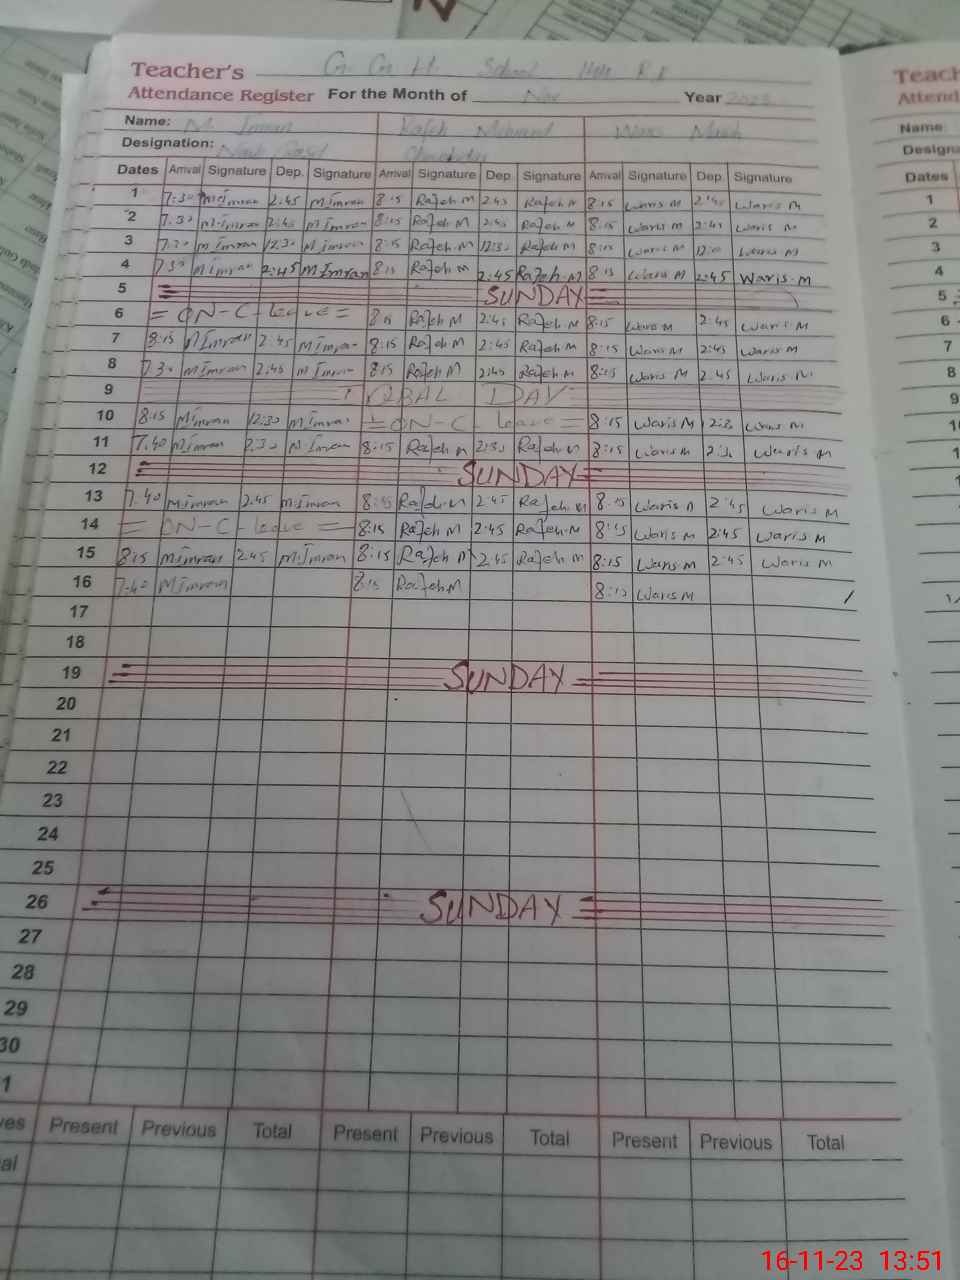 Teacher's G. G. H. School
Attendance Register For the Month of Nov Year 2023
Name: M. Imran Rafeh Mehmood Waris
Designation:
Dates Arrival Signature Dep. Signature Arrival Signature Dep. Signature Arrival Signature Dep. Signature
1 7:30 M Imran 2:45 M Imran 8:15 Rafeh M 2:45 Rafeh M 8:15 Waris M 2:45 Waris M
2 7:30 M Imran 2:45 M Imran 8:15 Rafeh M 2:45 Rafeh M 8:15 Waris M 2:45 Waris M
3 7:30 M Imran 12:30 M Imran 8:15 Rafeh M 12:30 Rafeh M 8:15 Waris M Waris M
4 7:30 M Imran 2:45 M Imran 8:15 Rafeh M 2:45 Rafeh.M 8:15 Waris M 2:45 Waris.M
5 SUNDAY
6 = ON-C-leave = 8:15 Rafeh M 2:45 Rafeh.M 8:15 Waris M 2:45 Waris M
7 8:15 M Imran 2:45 M Imran 8:15 Rafeh M 2:45 Rafeh M 8:15 Waris M 2:45 Waris M
8 7:30 M Imran 2:45 M Imran 8:15 Rafeh M 2:45 Rafeh M 8:15 Waris M 2:45 Waris M
9 IQBAL DAY
10 8:15 M Imran 12:30 M Imran = ON-C-leave = 8:15 Waris M Waris M
11 7:40 M Imran 2:30 M Imran 8:15 Rafeh M 2:30 Rafeh M 8:15 Waris M Waris M
12 SUNDAY
13 7:40 M Imran 2:45 M Imran 8:15 Rafeh M 2:45 Rafeh M 8:15 Waris M 2:45 Waris M
14 = ON-C-leave = 8:15 Rafeh M 2:45 Rafeh.M 8:15 Waris M 2:45 Waris M
15 8:15 M Imran 2:45 M Imran 8:15 Rafeh M 2:45 Rafeh M 8:15 Waris M 2:45 Waris M
16 7:40 M Imran 8:15 Rafeh M 8:15 Waris M
17
18
19 SUNDAY
20
21
22
23
24
25
26 SUNDAY
27
28
29
30
1
ves Present Previous Total Present Previous Total Present Previous Total
al
Teach
Attend
Name:
Designa
Dates
1
2
3
4
5
6
7
8
16-11-23 13:51